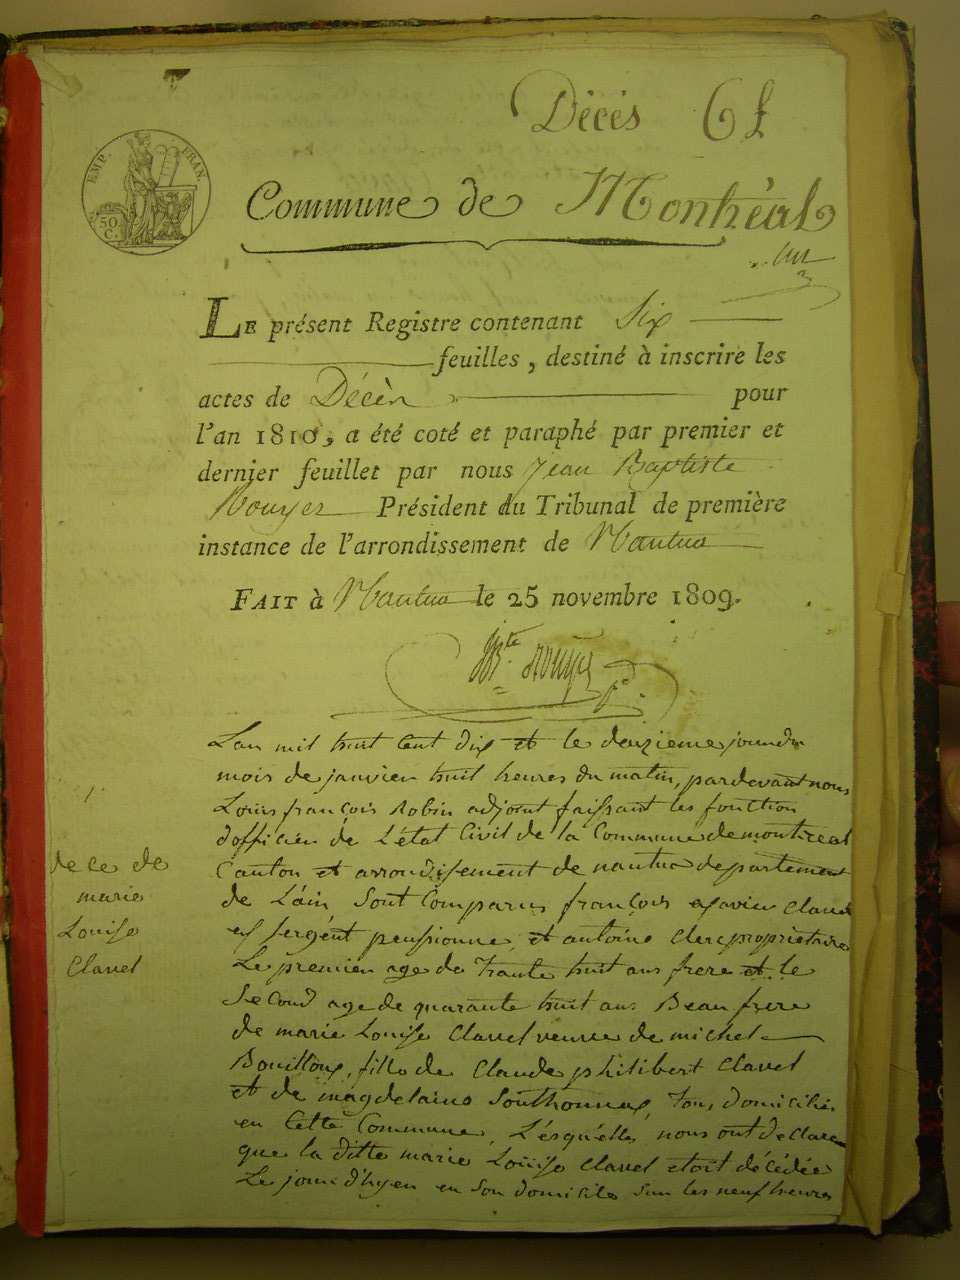 Décès 6f
EMP. FRAN.
50 C.
Commune de Montréal
un
LE présent Registre contenant Six
feuilles, destiné à inscrire les
actes de Décès pour
l'an 1810, a été coté et paraphé par premier et
dernier feuillet par nous Jean Baptiste
Rouyer Président du Tribunal de première
instance de l'arrondissement de Nantua
FAIT à Nantua le 25 novembre 1809.
JB.te Rouyer
L'an mil huit cent dix et le deuzieme jour du
mois de janvier huit heures du matin, pardevant nous
1
Louis françois Robin adjoint faissant les fonction
d'officier de L'état Civil de la Commune de montreal
Canton et arrondissement de nantua departement
de ce de
marie
Louise
Clavel
de L'ain sont Comparus françois Xavier Clavel
ex sergent pensionne, et antoine Clerc proprietaire
Le premier age de trante huit ans frere et le
second age de quarante huit ans Beau frere
de marie Louise Clavel veuve de michel
Bouilloux, fille de Claude philibert Clavel
et de magdelaine Southonnax, tous domiciliés
en cette Commune, Lésqu'elles nous ont declare
que la ditte marie Louise Clavel etoit décédée
Le jour d'hyer en son domicile sur les neuf heures